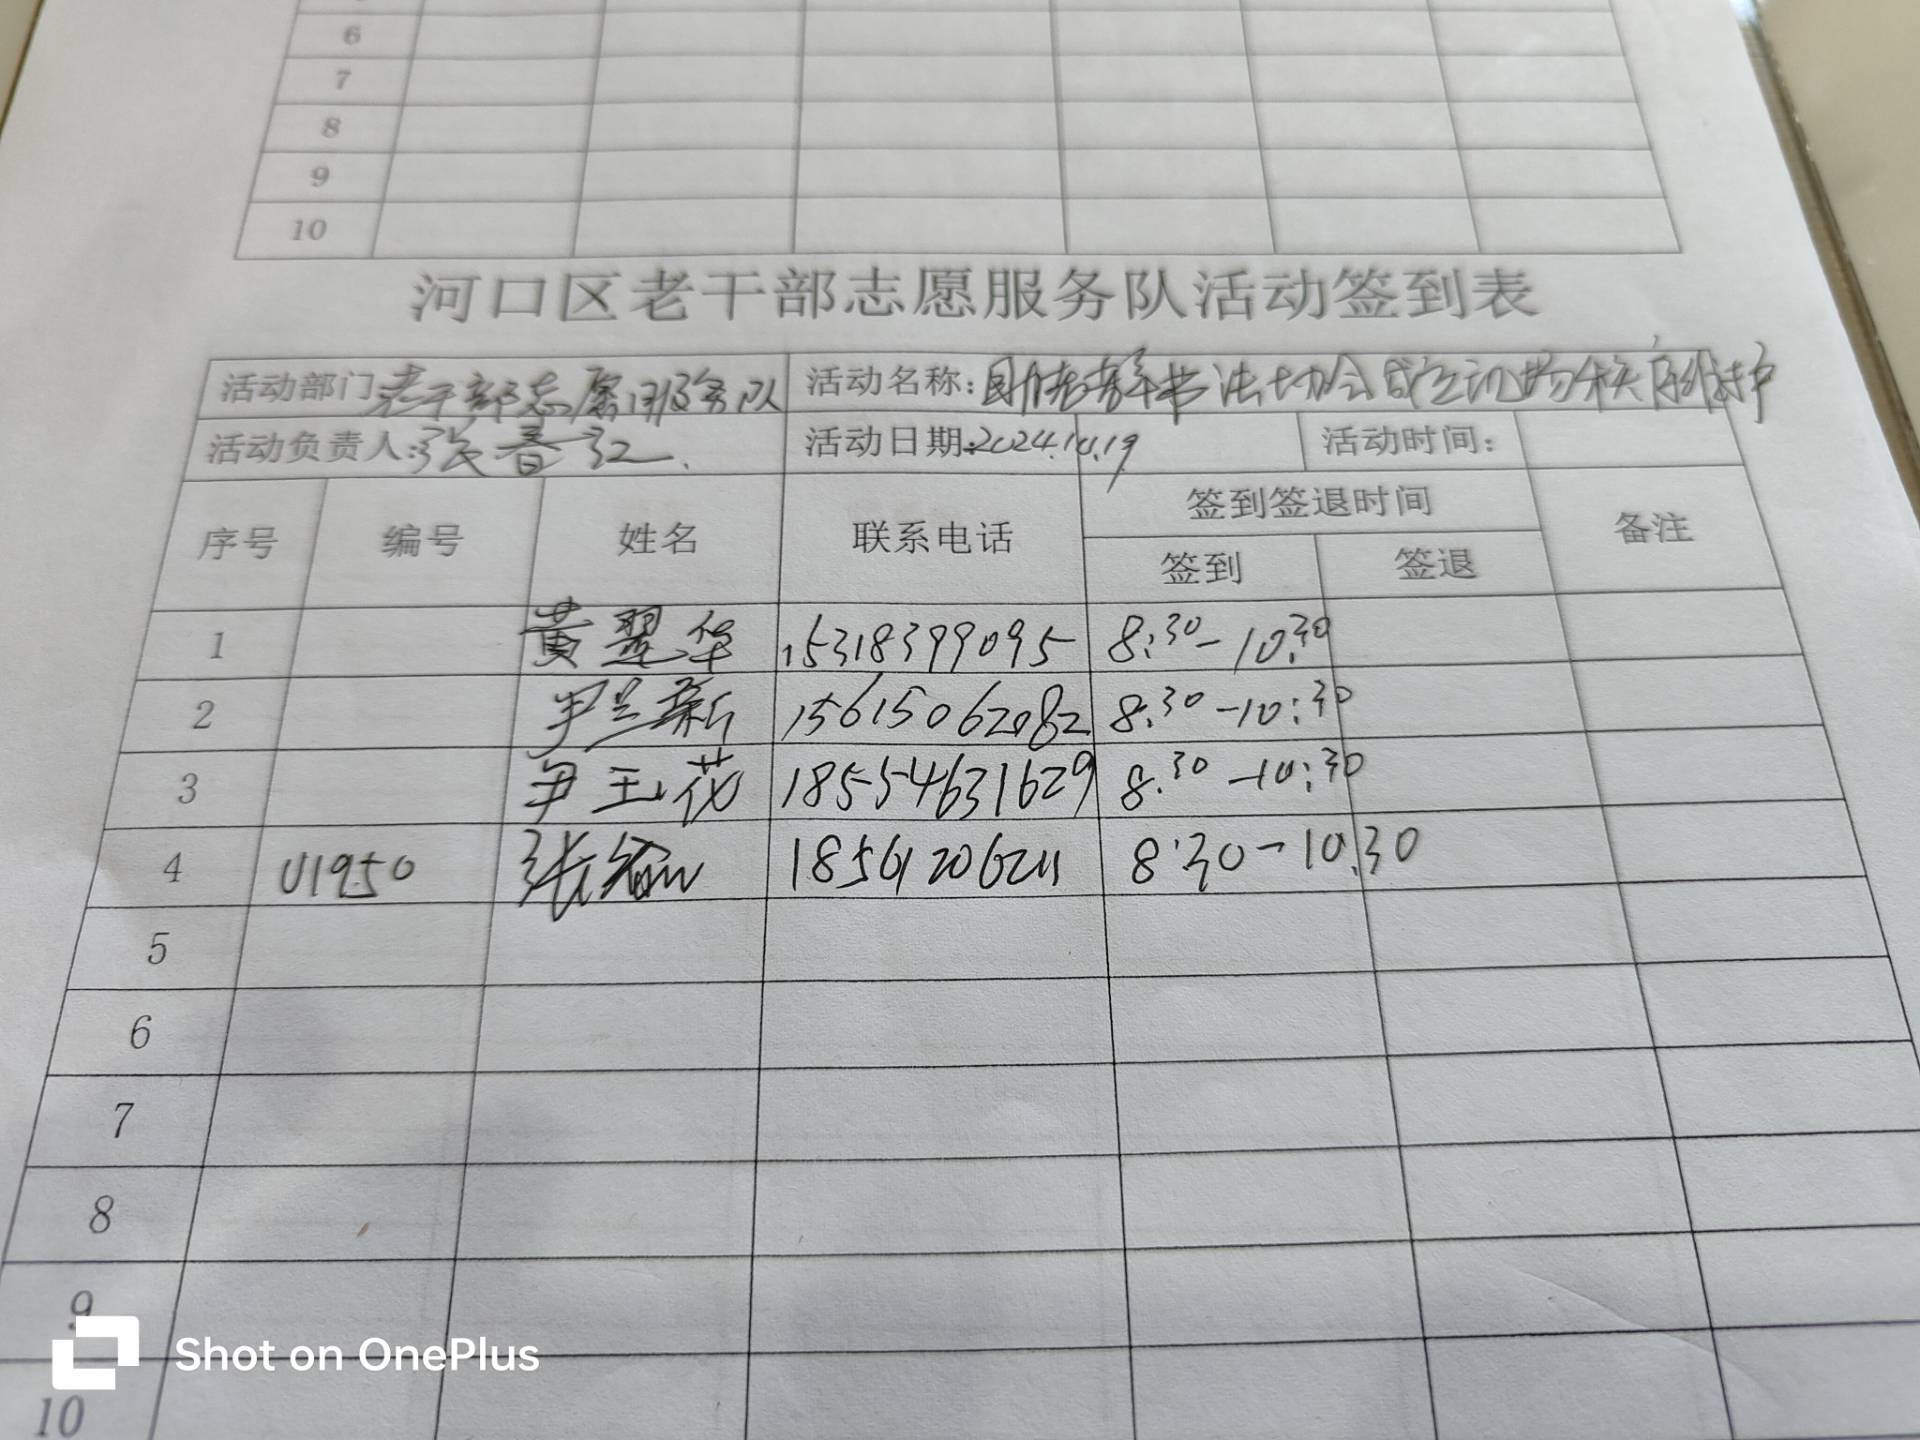 6
7
8
9
10
河口区老干部志愿服务队活动签到表
活动部门:老干部志愿服务队 活动名称:青年书法协会成立现场秩序维护
活动负责人:张春红 活动日期:2024.10.19 活动时间:
序号 编号 姓名 联系电话 签到签退时间 备注
签到 签退
1 黄翠华 15318399095 8:30-10:30
2 尹兰新 15615062082 8:30-10:30
3 尹玉花 18554631629 8:30-10:30
4 01950 张 18561206211 8:30-10:30
5
6
7
8
9
10
Shot on OnePlus